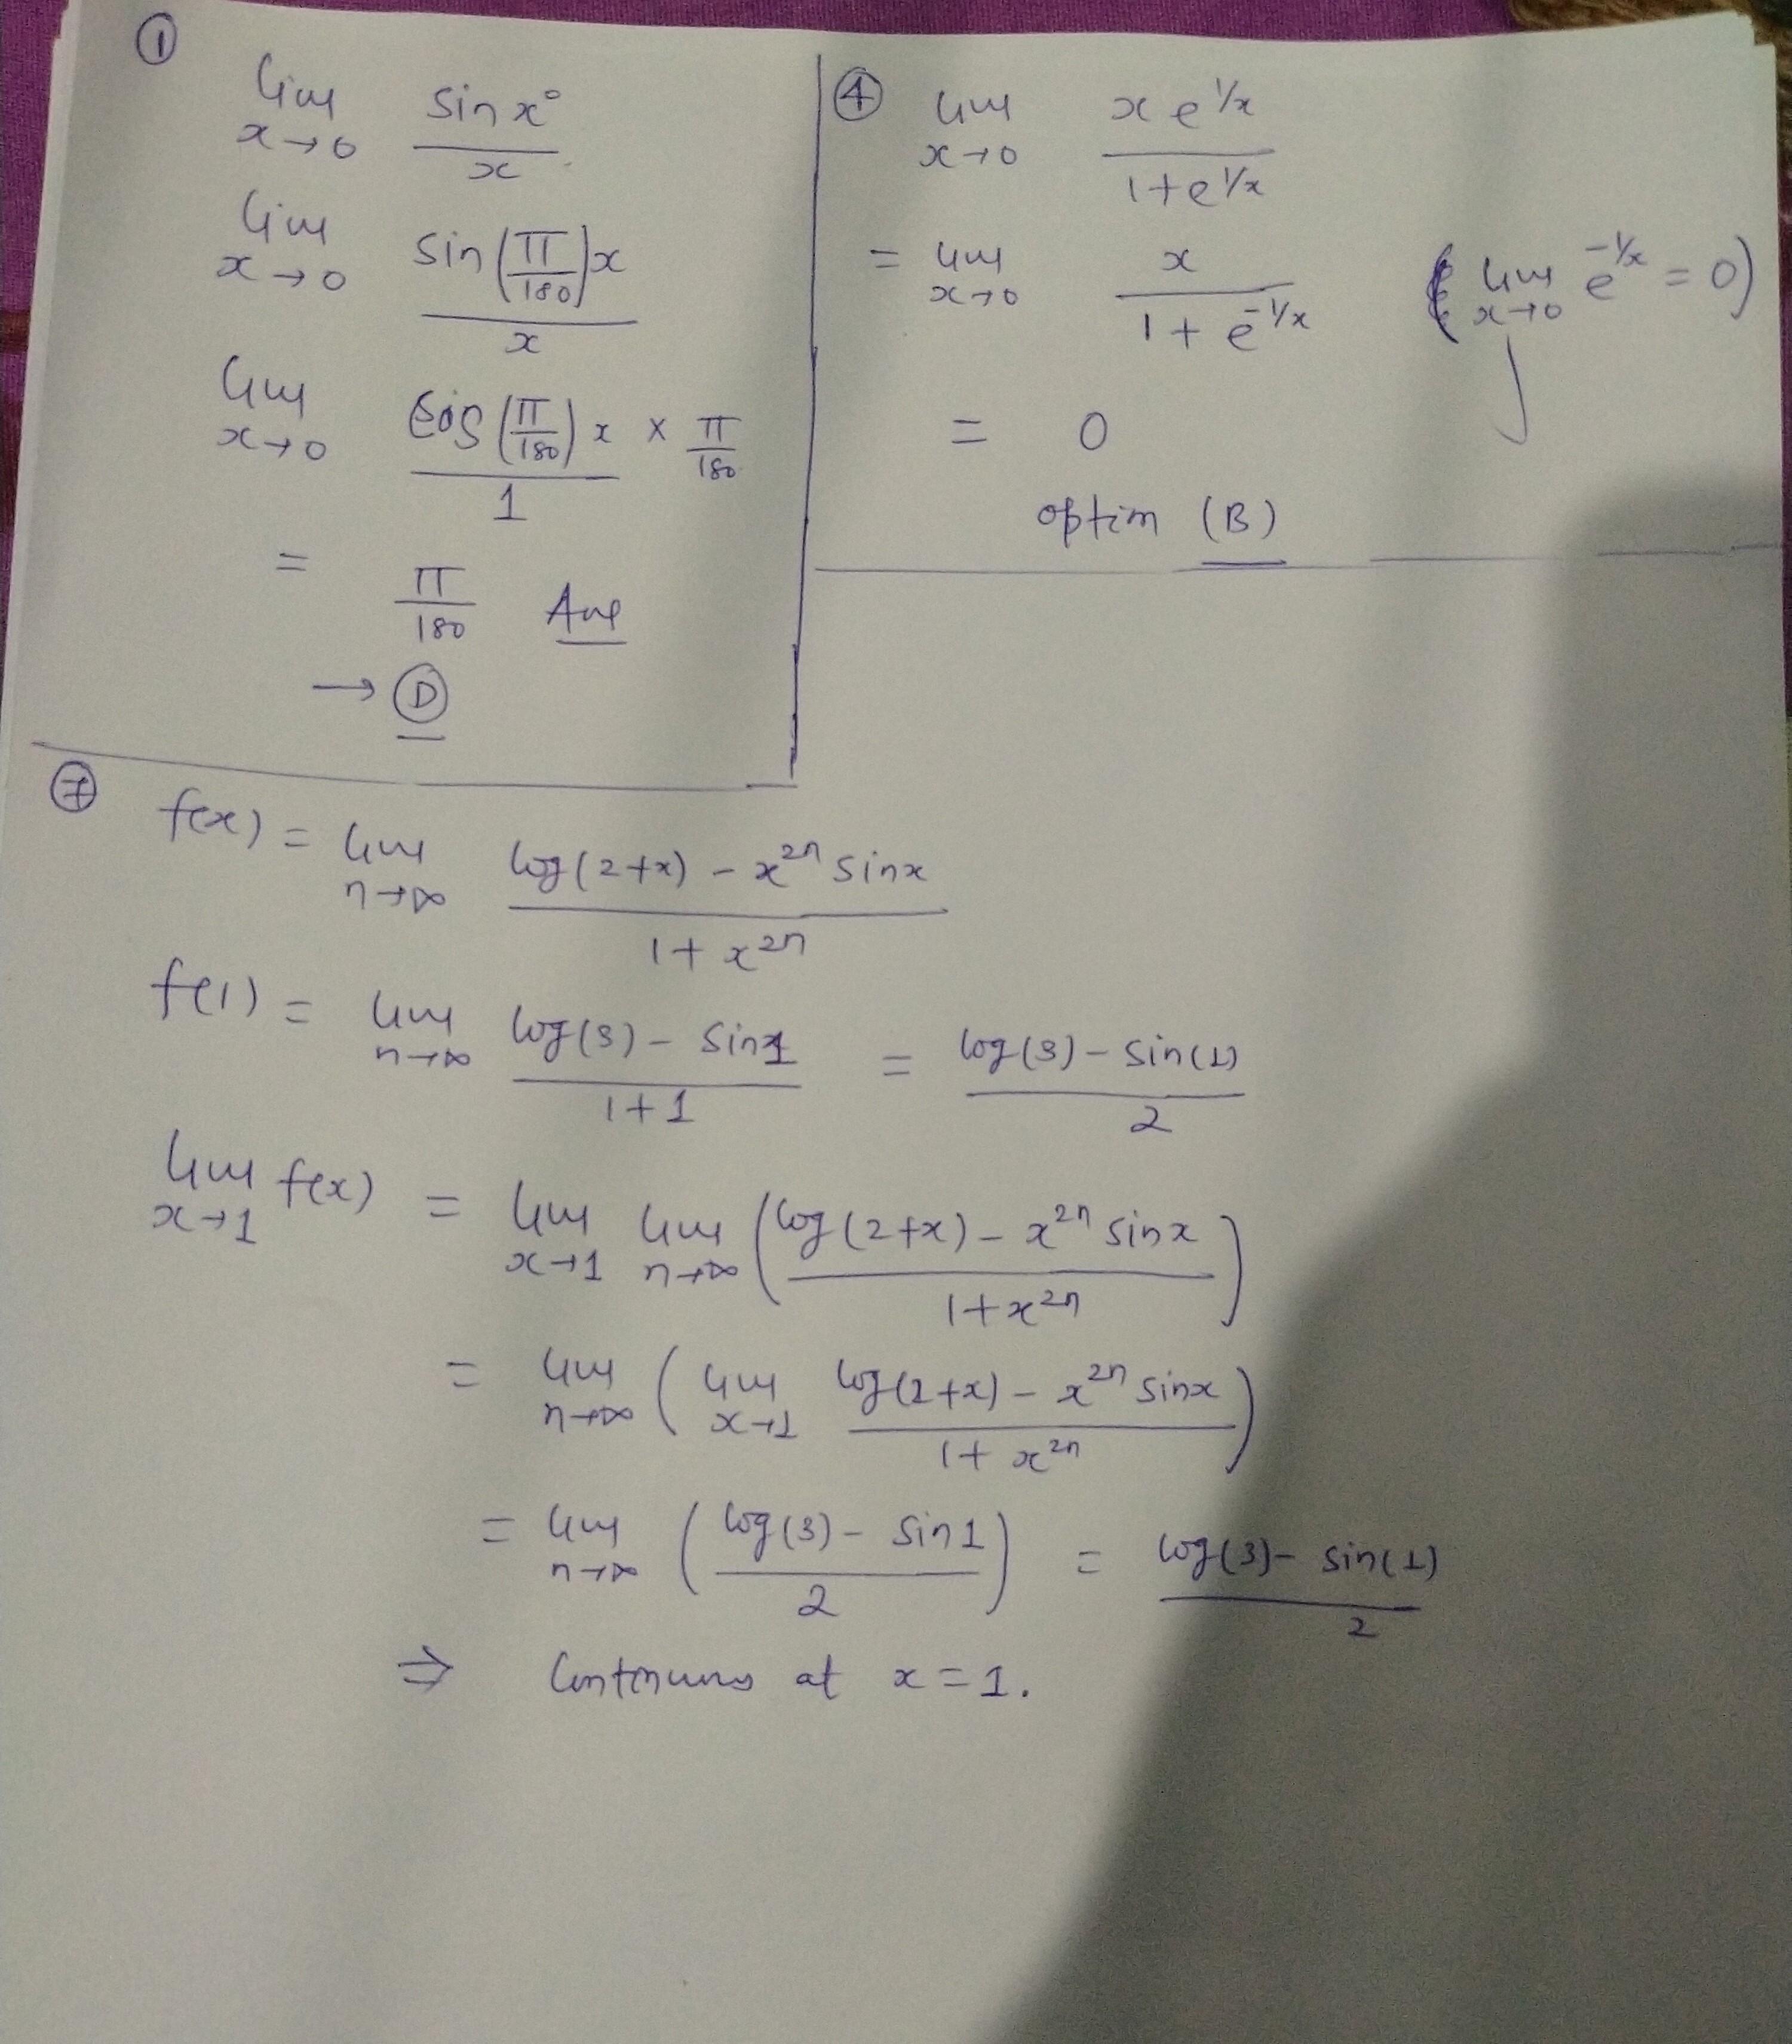 ①
lim x→0 sin x° / x
lim x→0 sin(π/180)x / x
lim x→0 cos(π/180)x / 1 × π/180
= π/180 Ans
→ Ⓓ
④ lim x→0 x e^(1/x) / 1+e^(1/x)
= lim x→0 x / 1+e^(-1/x) ( lim x→0 e^(-1/x) = 0)
= 0
option (B)
⑦ f(x) = lim n→∞ log(2+x) - x^(2n) sinx / 1+x^(2n)
f(1) = lim n→∞ log(3) - sin1 / 1+1 = log(3) - sin(1) / 2
lim x→1 f(x) = lim x→1 lim n→∞ (log(2+x) - x^(2n) sinx / 1+x^(2n))
= lim n→∞ ( lim x→1 log(2+x) - x^(2n) sinx / 1+x^(2n))
= lim n→∞ (log(3) - sin1 / 2) = log(3) - sin(1) / 2
⇒ Continuous at x=1.